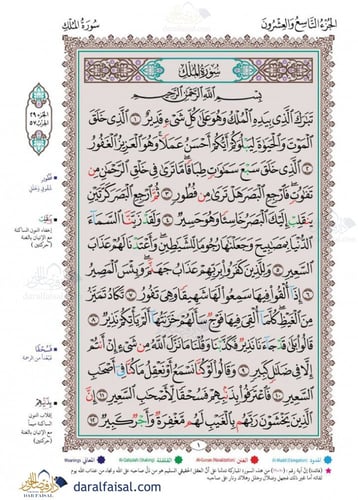 الجُزْءُ التَّاسِعُ وَالعِشْرُونَ
سُورَةُ المُلْكِ
سُورَةُ المُلْكِ
بِسْمِ اللَّهِ الرَّحْمَٰنِ الرَّحِيمِ
تَبَٰرَكَ الَّذِي بِيَدِهِ الْمُلْكُ وَهُوَ عَلَىٰ كُلِّ شَيْءٍ قَدِيرٌ ١ الَّذِي خَلَقَ
الْمَوْتَ وَالْحَيَوٰةَ لِيَبْلُوَكُمْ أَيُّكُمْ أَحْسَنُ عَمَلًا وَهُوَ الْعَزِيزُ الْغَفُورُ
٢ الَّذِي خَلَقَ سَبْعَ سَمَٰوَٰتٍ طِبَاقًا مَّا تَرَىٰ فِي خَلْقِ الرَّحْمَٰنِ مِن
تَفَٰوُتٍ فَارْجِعِ الْبَصَرَ هَلْ تَرَىٰ مِن فُطُورٍ ٣ ثُمَّ ارْجِعِ الْبَصَرَ كَرَّتَيْنِ
يَنقَلِبْ إِلَيْكَ الْبَصَرُ خَاسِئًا وَهُوَ حَسِيرٌ ٤ وَلَقَدْ زَيَّنَّا السَّمَاءَ
الدُّنْيَا بِمَصَٰبِيحَ وَجَعَلْنَٰهَا رُجُومًا لِّلشَّيَٰطِينِ وَأَعْتَدْنَا لَهُمْ عَذَابَ
السَّعِيرِ ٥ وَلِلَّذِينَ كَفَرُوا بِرَبِّهِمْ عَذَابُ جَهَنَّمَ وَبِئْسَ الْمَصِيرُ
٦ إِذَا أُلْقُوا فِيهَا سَمِعُوا لَهَا شَهِيقًا وَهِيَ تَفُورُ ٧ تَكَادُ تَمَيَّزُ
مِنَ الْغَيْظِ كُلَّمَا أُلْقِيَ فِيهَا فَوْجٌ سَأَلَهُمْ خَزَنَتُهَا أَلَمْ يَأْتِكُمْ نَذِيرٌ ٨
قَالُوا بَلَىٰ قَدْ جَاءَنَا نَذِيرٌ فَكَذَّبْنَا وَقُلْنَا مَا نَزَّلَ اللَّهُ مِن شَيْءٍ إِنْ أَنتُمْ
إِلَّا فِي ضَلَٰلٍ كَبِيرٍ ٩ وَقَالُوا لَوْ كُنَّا نَسْمَعُ أَوْ نَعْقِلُ مَا كُنَّا فِي أَصْحَٰبِ
السَّعِيرِ ١٠ فَاعْتَرَفُوا بِذَنبِهِمْ فَسُحْقًا لِّأَصْحَٰبِ السَّعِيرِ ١١ إِنَّ
الَّذِينَ يَخْشَوْنَ رَبَّهُم بِالْغَيْبِ لَهُم مَّغْفِرَةٌ وَأَجْرٌ كَبِيرٌ ١٢
الجزء ٢٩
الحزب ٥٧
فُطُورٍ
شقوق وخلل
يَنقَلِبْ
إخفاء النون الساكنة
مع الإتيان بالغنة
(حركتين)
فَسُحْقًا
فبعداً من الرحمة
بِذَنبِهِمْ
إقلاب النون
الساكنة ميماً
مع الإتيان بالغنة
(حركتين)
١
daralfaisal.com
daralfaisal.com
DAR ALFAISAL